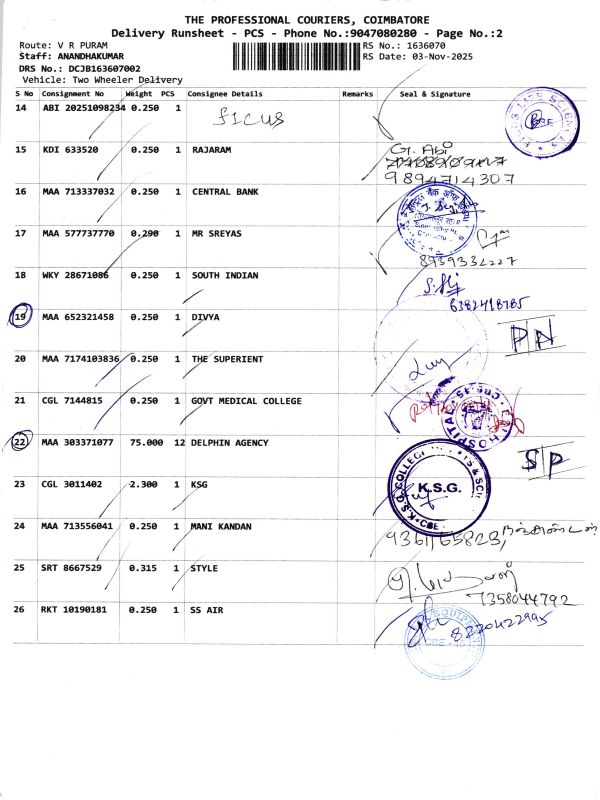 THE PROFESSIONAL COURIERS, COIMBATORE
Delivery Runsheet - PCS - Phone No.:9047080280 - Page No.:2
Route: V R PURAM
RS No.: 1636070
Staff: ANANDHAKUMAR
RS Date: 03-Nov-2025
DRS No.: DCJB163607002
Vehicle: Two Wheeler Delivery
S No Consignment No Weight PCS Consignee Details Remarks Seal & Signature
14 ABI 20251098234 0.250 1 ficus
15 KDI 633520 0.250 1 RAJARAM G. Abi
9894714307
16 MAA 713337032 0.250 1 CENTRAL BANK
17 MAA 577737770 0.290 1 MR SREYAS
8939332227
18 WKY 28671086 0.250 1 SOUTH INDIAN
6382418785
19 MAA 652321458 0.250 1 DIVYA PN
20 MAA 7174103836 0.250 1 THE SUPERIENT
21 CGL 7144815 0.250 1 GOVT MEDICAL COLLEGE
22 MAA 303371077 75.000 12 DELPHIN AGENCY SP
23 CGL 3011402 2.300 1 KSG K.S.G.
24 MAA 713556041 0.250 1 MANI KANDAN
25 SRT 8667529 0.315 1 STYLE
7358044792
26 RKT 10190181 0.250 1 SS AIR 8220422995